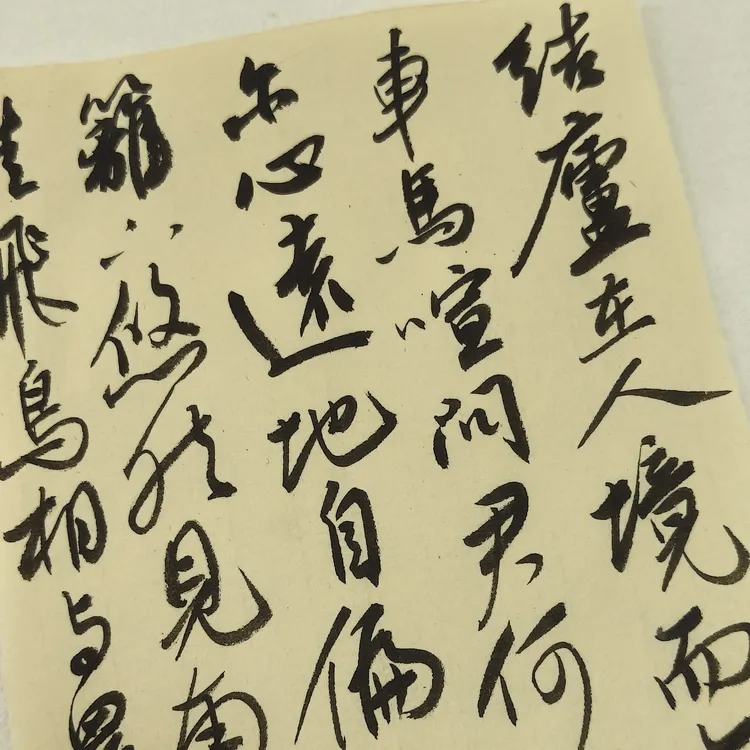 結廬在人境而
車馬喧問君何
尔心遠地自偏
籬下悠然見南
佳飛鳥相与還